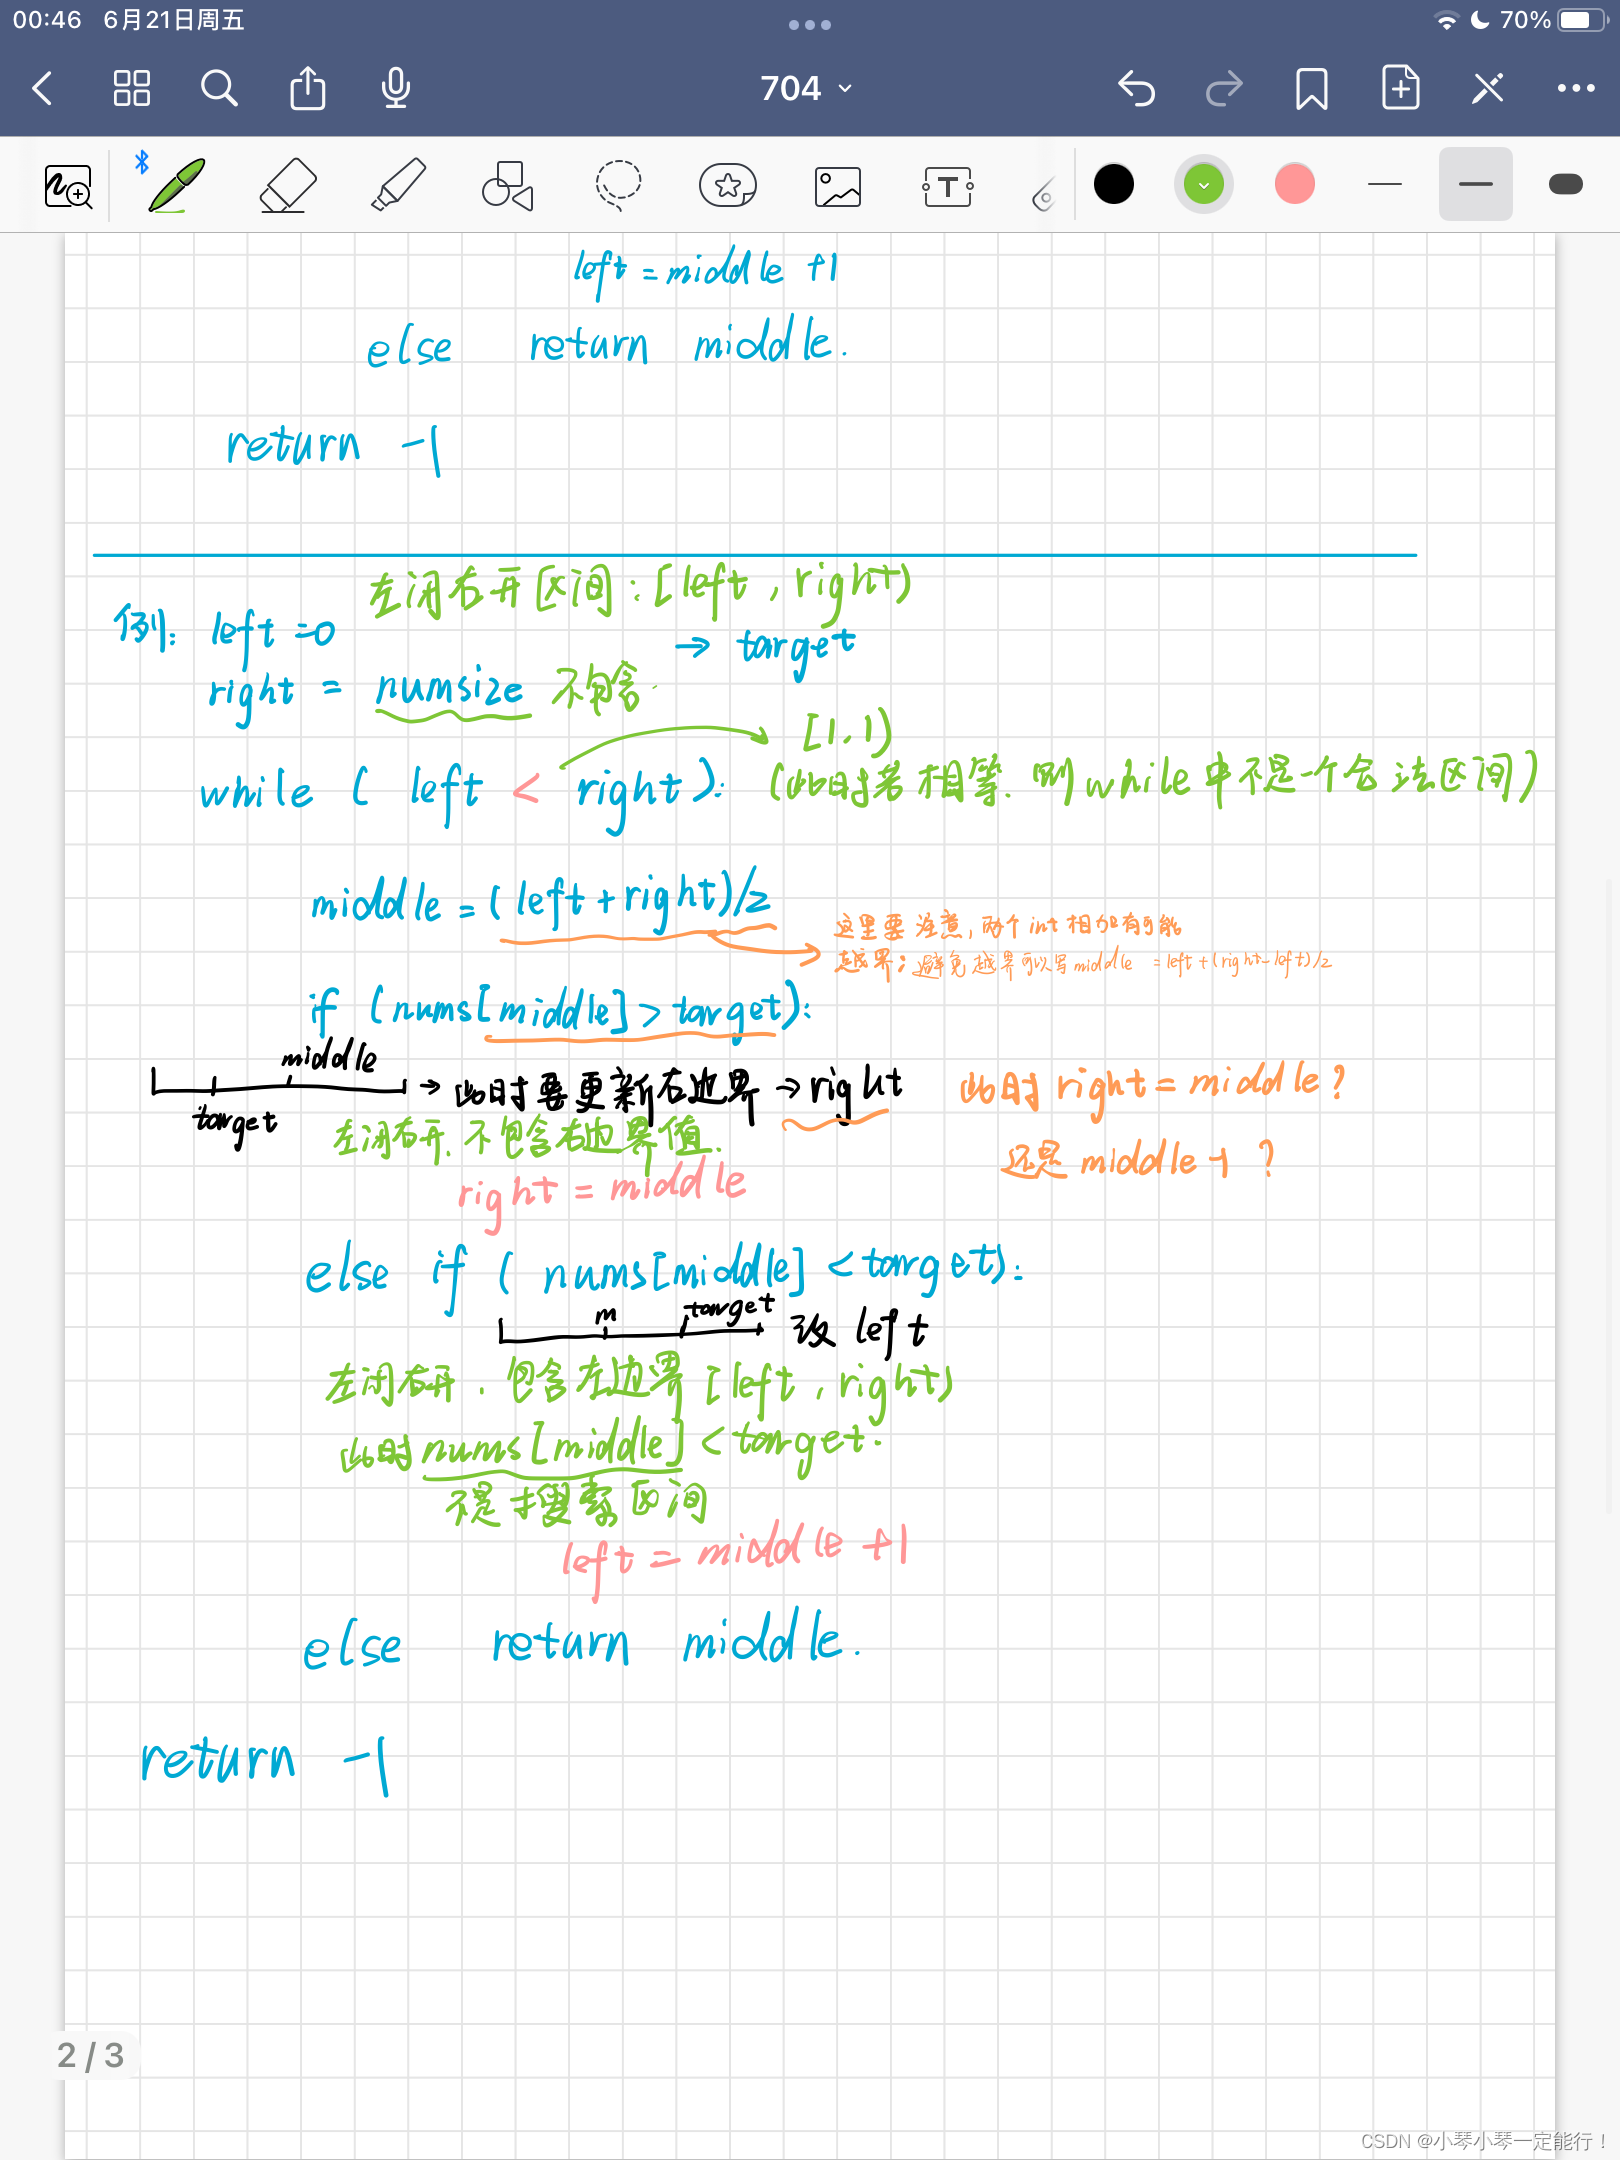 00:46 6月21日周五
70%
704
left = middle +1
else return middle.
return -1
左闭右开区间:[left, right)
例: left =0
→ target
right = numsize 不包含.
[1,1)
while ( left < right): (此时若相等.则while中不是一个合法区间)
middle = (left+right)/2
这里要注意,两个int相加有可能
越界; 避免越界可以写middle = left+(right-left)/2
if (nums[middle]>target):
middle
→此时要更新右边界→right 此时right=middle?
target
左闭右开.不包含右边界值.
还是middle-1?
right = middle
else if ( nums[middle] <target):
m target 改 left
左闭右开.包含左边界 [left, right)
此时nums[middle]<target.
不是搜索区间
left = middle +1
else return middle.
return -1
2 / 3
CSDN @小琴小琴一定能行!